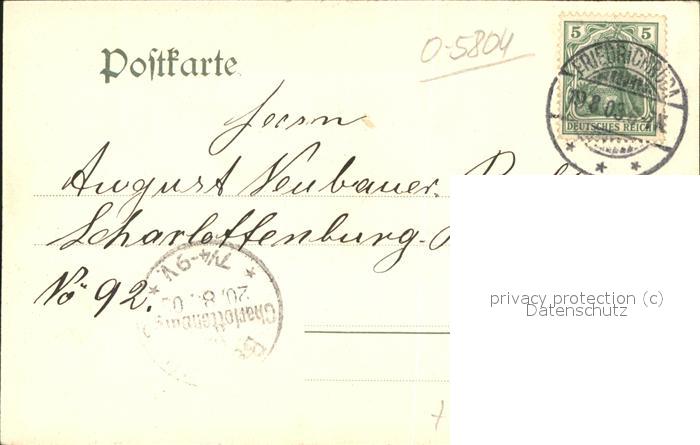 O-5804
5 5
FRIEDRICHRODA
19.8.03
DEUTSCHES REICH
Postkarte
Herrn
August Neubauer.
Scharlottenburg.
No 92.
7¼-9V.
20.8.0
Charlottenburg
privacy protection (c)
Datenschutz